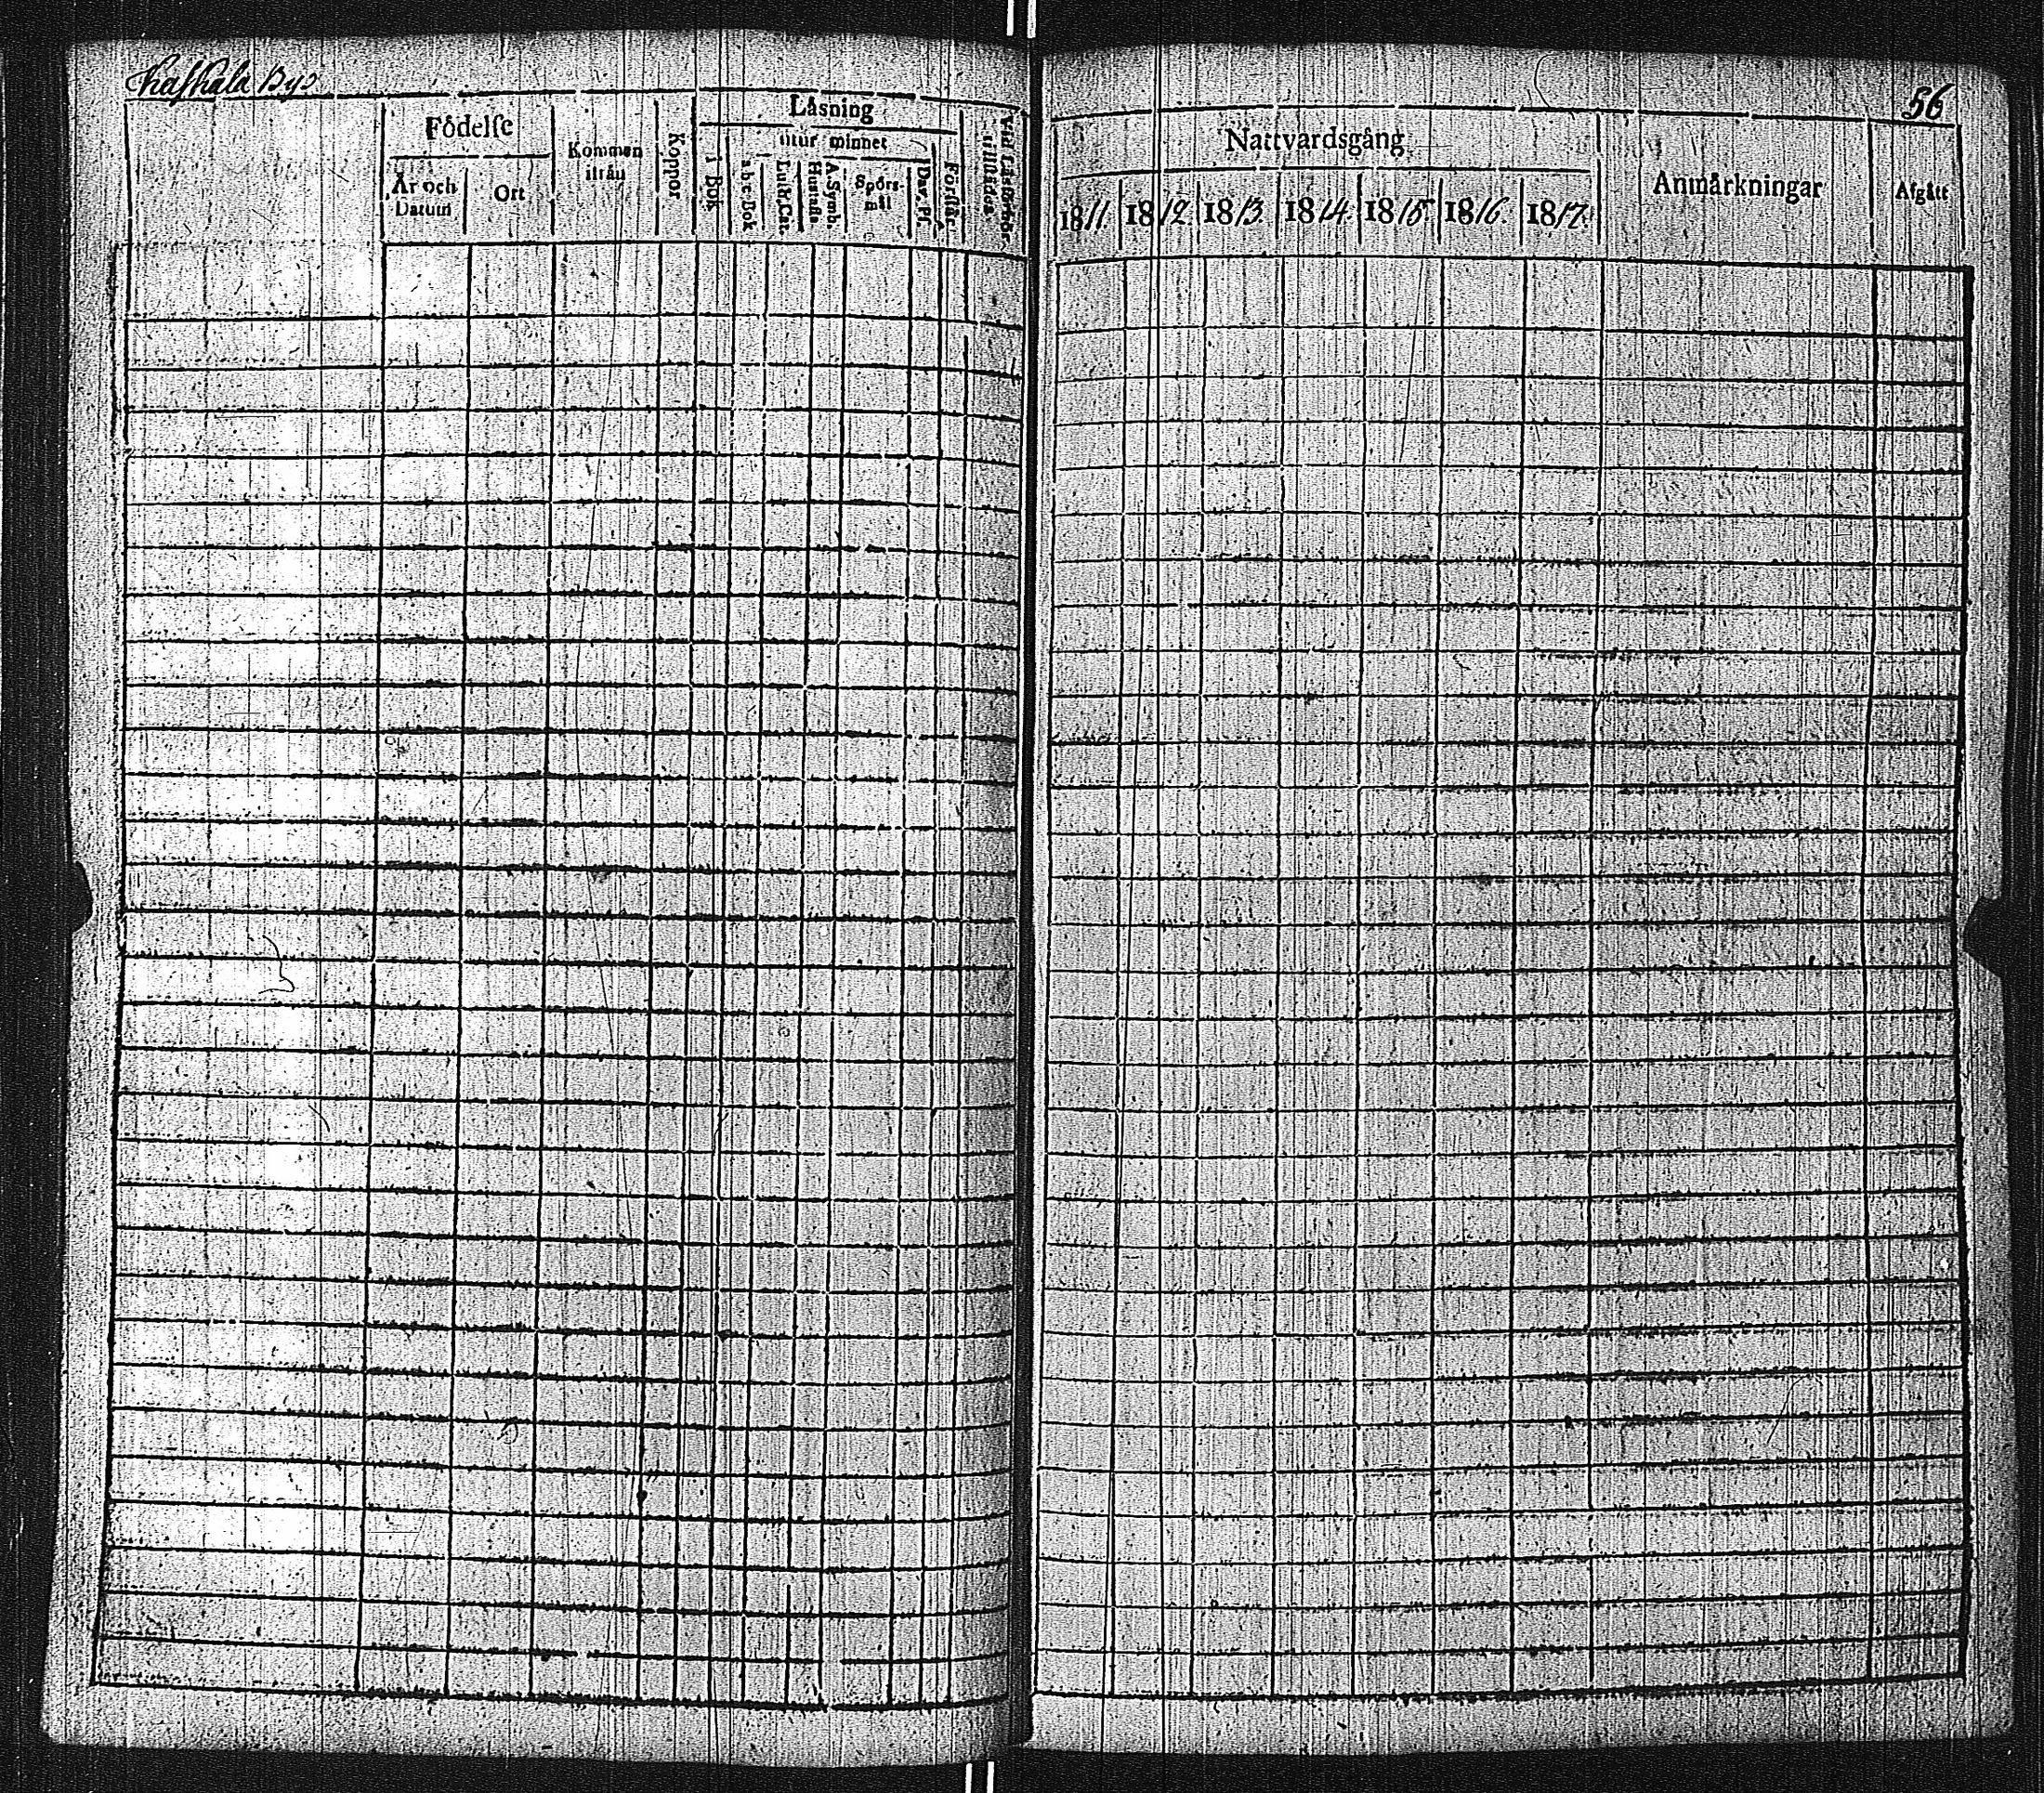 Kaskala By
56
Födelse
År och Datum
Ort
Kommen ifrån
Koppor
Läsning
i Bok
utur minnet
a b c Bok
Luth. Cat.
Hustafla
A. Symb.
Spörsmål
Dav. Ps.
Förstår.
Vid Läsförhör. tillstädes
Nattvardsgång
1811.
1812.
1813.
1814.
1815.
1816.
1817.
Anmärkningar
Afgått